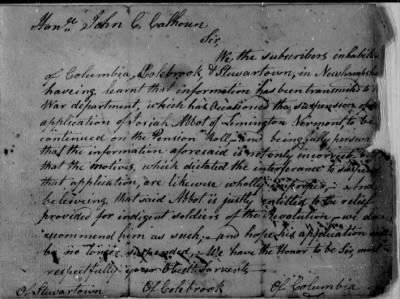 Honble John C. Calhoun
Sir,
We the subscribers inhabit
of Columbia, Colebrook, & Stewartown, in Newhampshire
haveing learnt that information has been transmited to
War department, which has Ocationed the suspension of
application of Abbot of Lemington Vermont to be
continued on the Pension Roll,– and being fully
that the information aforesaid is not only incorrect but
that the motives, which dictated the interferance to
that application, are likewise wholly improper;– and
beleiving, that said Abbot is justly entitled to the relief
provided for indigent soldiers of the Revolution,– we do
recommend him as such,– and hope his application
be no longer suspended,– We have the Honor to be Sir, most
respectfully your Obedt Servents
Of Stewartown Of Colebrook Of Columbia